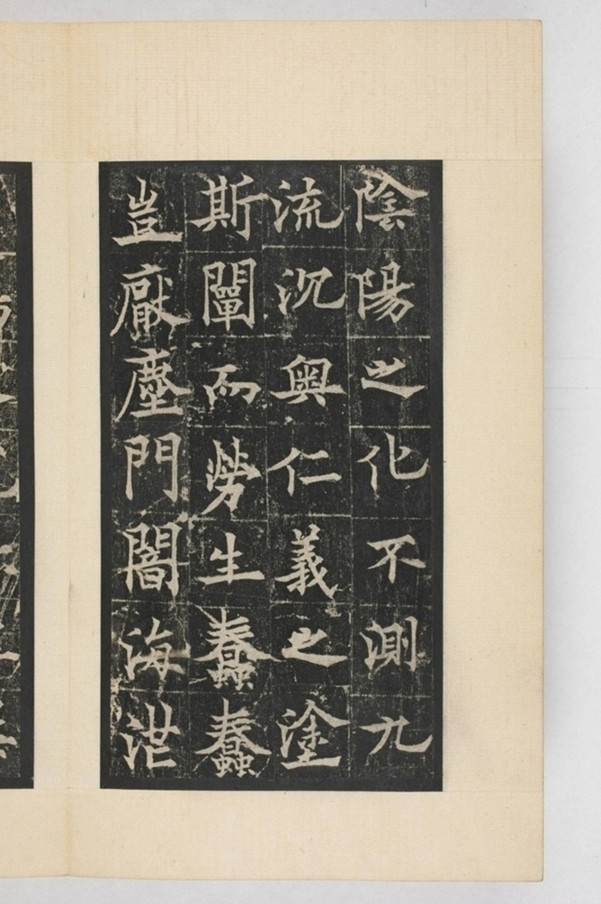 陰陽之化不測九
流沉奧仁義之塗
斯闡而勞生蠢蠢
豈厭塵門闇海茫